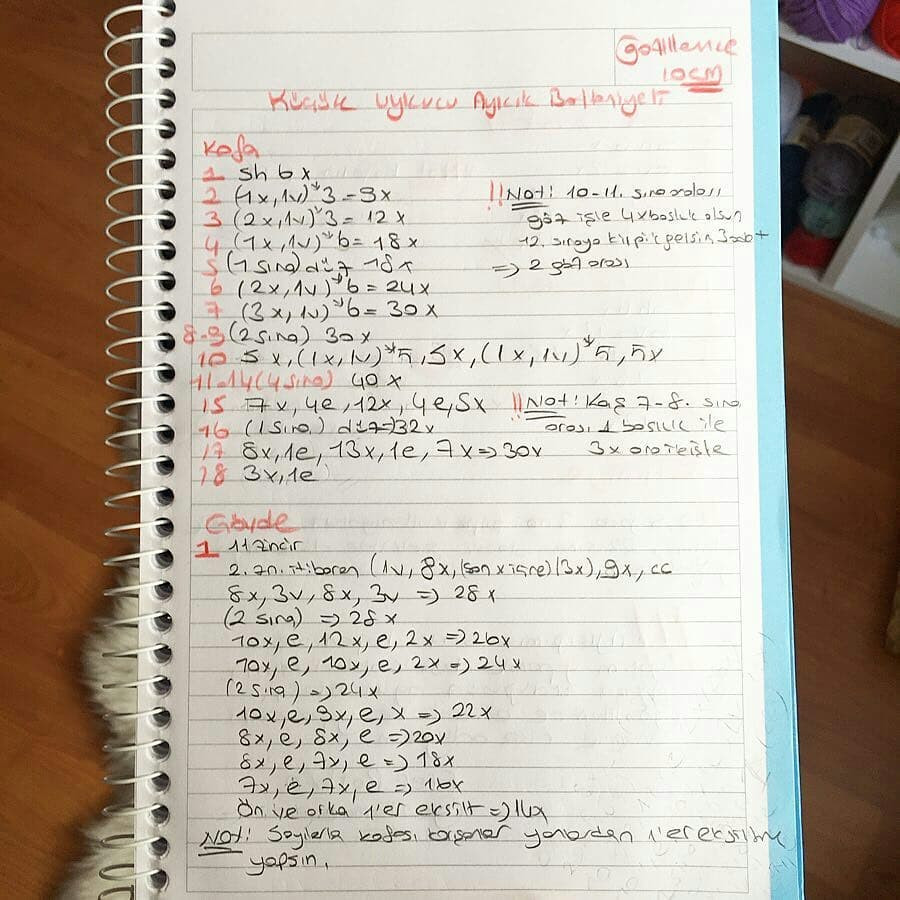 10CM
Küçük Uykucu Ayıcık
Kafa
1 Sh 6x
2 (1x,1v)*3 = 9x
3 (2x,1v)*3 = 12x
4 (1x,1v)*6 = 18x
5 (1 sıra) düz 18x
6 (2x,1v)*6 = 24x
7 (3x,1v)*6 = 30x
8-9 (2 sıra) 30x
10 5x,(1x,1v)*5,5x,(1x,1v)*5,5x
11-14 (4 sıra) 40x
15 7x,4e,12x,4e,5x
16 (1 sıra) düz => 32x
17 8x,1e,13x,1e,7x => 30x
18 3x,1e
!! Not! 10-11. sıra arası
göz işle 4x boşluk olsun
12. sıraya kirpik gelsin
=> 2 göz arası
!! Not! Kaş 7-8. sıra
arası 1 boşluk ile
3x ara ile işle
Gövde
1 11 zincir
2. zn. itibaren (1v, 8x, (son x içine) (3x), 9x, cc
8x, 3v, 8x, 3v => 28x
(2 sıra) => 28x
10x, e, 12x, e, 2x => 26x
10x, e, 10x, e, 2x => 24x
(2 sıra) => 24x
10x, e, 9x, e, x => 22x
8x, e, 8x, e => 20x
8x, e, 7x, e => 18x
7x, e, 7x, e => 16x
Ön ve arka 1'er eksilt => 14x
Not! Sayılarla kafası karışanlar yanlardan 1'er eksiltme
yapsın.